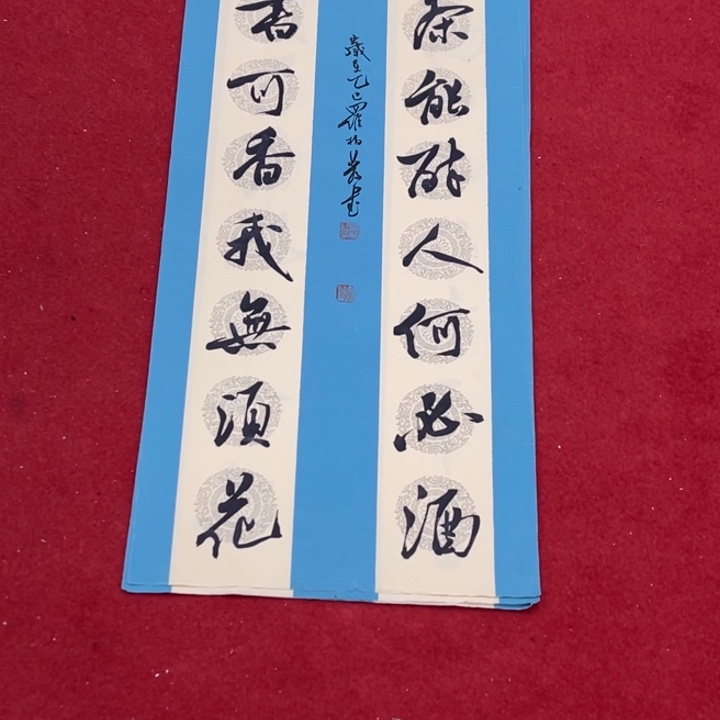 茶能醉人何必酒
書可香我無須花
歲至乙巳羅書